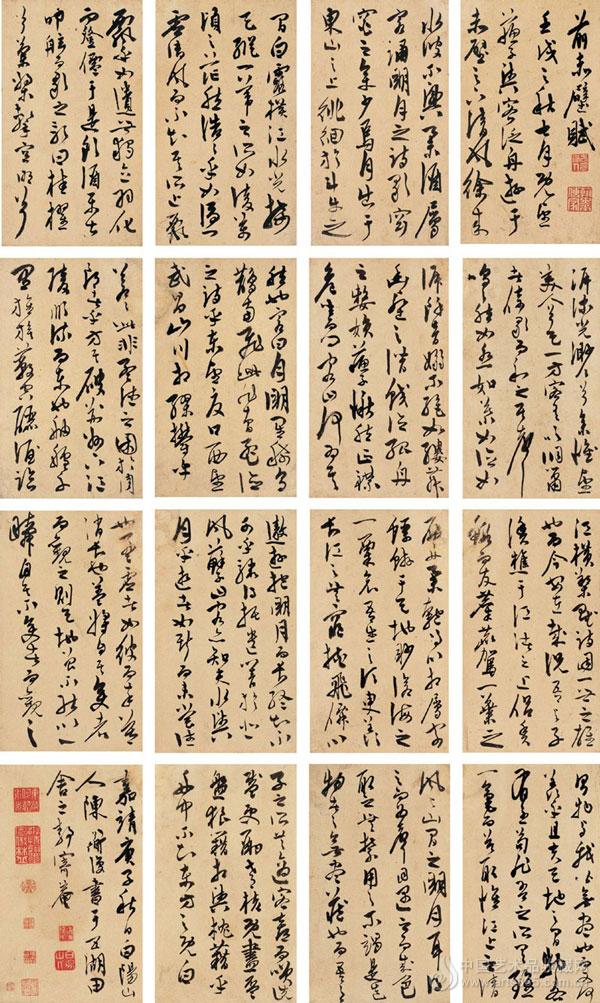 前赤壁賦
壬戌之秋七月既望
蘇子與客泛舟遊于
赤壁之下清風徐来
水波不興舉酒屬
客誦明月之詩歌窈
窕之章少焉月出于
東山之上徘徊於斗牛之
間白露橫江水光接
天縱一葦之所如凌萬
頃之茫然浩浩乎如馮
虛御風而不知其所止飄
飄乎如遺世獨立羽化
而登僊于是飲酒樂甚
叩舷而歌之歌曰桂櫂
兮蘭槳擊空明兮
泝流光渺渺兮余懷望
美人兮天一方客有吹洞簫
者倚歌而和之其聲
嗚嗚然如怨如慕如泣如
訴餘音嫋嫋不絕如縷舞
幽壑之潛蛟泣孤舟
之嫠婦蘇子愀然正襟
危坐而問客曰何爲其
然也客曰月明星稀烏
鵲南飛此非曹孟德
之詩乎東望夏口西望
武昌山川相繆鬱乎
蒼蒼此非孟德之困於周
郎者乎方其破荆州下江
陵順流而東也舳艫千
里旌旗蔽空釃酒臨
江橫槊賦詩固一世之雄
也而今安在哉況吾與子
漁樵于江渚之上侶魚
鰕而友麋鹿駕一葉之
扁舟舉匏尊以相屬寄
蜉蝣于天地渺滄海之
一粟哀吾生之須臾羨
長江之無窮挾飛僊以
遨遊抱明月而長終知不
可乎驟得託遺響於悲
風蘇子曰客亦知夫水與
月乎逝者如斯而未嘗往
也盈虛者如彼而卒莫
消長也蓋將自其變者
而觀之則天地曾不能以一
瞬自其不變者而觀之
則物與我皆無盡也而又何
羨乎且夫天地之間物各
有主苟非吾之所有雖
一毫而莫取惟江上之清
風與山間之明月耳得
之而爲聲目遇之成色
取之無禁用之不竭是造
物者之無盡藏也而吾與
子之所共適客喜而笑洗
盞更酌肴核既盡杯
盤狼藉相與枕藉乎
舟中不知東方之既白
嘉靖庚子秋日白陽山
人陳道復書于五湖田
舍之寄菴
中国艺术品收藏网